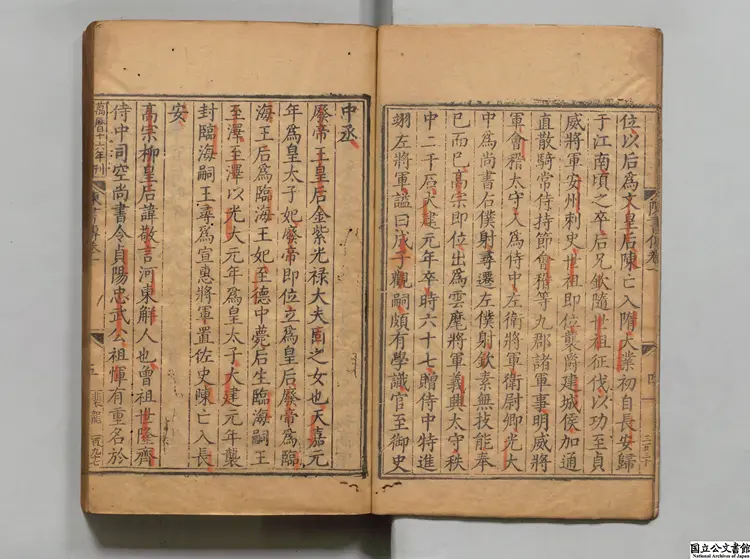 陳書傳卷一
四
位以后爲文皇后陳亡入隋大業初自長安歸
于江南頃之卒后兄欽隨世祖征伐以功至貞
威將軍安州刺史世祖即位襲爵建城侯加通
直散騎常侍持節會稽等九郡諸軍事明威將
軍會稽太守入爲侍中左衛將軍衛尉卿光大
中爲尚書右僕射尋遷左僕射欽素無技能奉
已而已高宗即位出爲雲麾將軍義興太守秩
中二千石大建元年卒時六十七贈侍中特進
翊左將軍謚曰成子觀嗣頗有學識官至御史
中丞
廢帝王皇后金紫光祿大夫固之女也天嘉元
年爲皇太子妃廢帝即位立爲皇后廢帝爲臨
海王后爲臨海王妃至德中薨后生臨海嗣王
至澤至澤以光大元年爲皇太子大建元年襲
封臨海嗣王尋爲宣惠將軍置佐史陳亡入長
安
高宗柳皇后諱敬言河東解人也曾祖世隆齊
侍中司空尚書令貞陽忠武公祖惲有重名於
萬曆十六年刊
陳書傳卷一
五
国立公文書館
National Archives of Japan